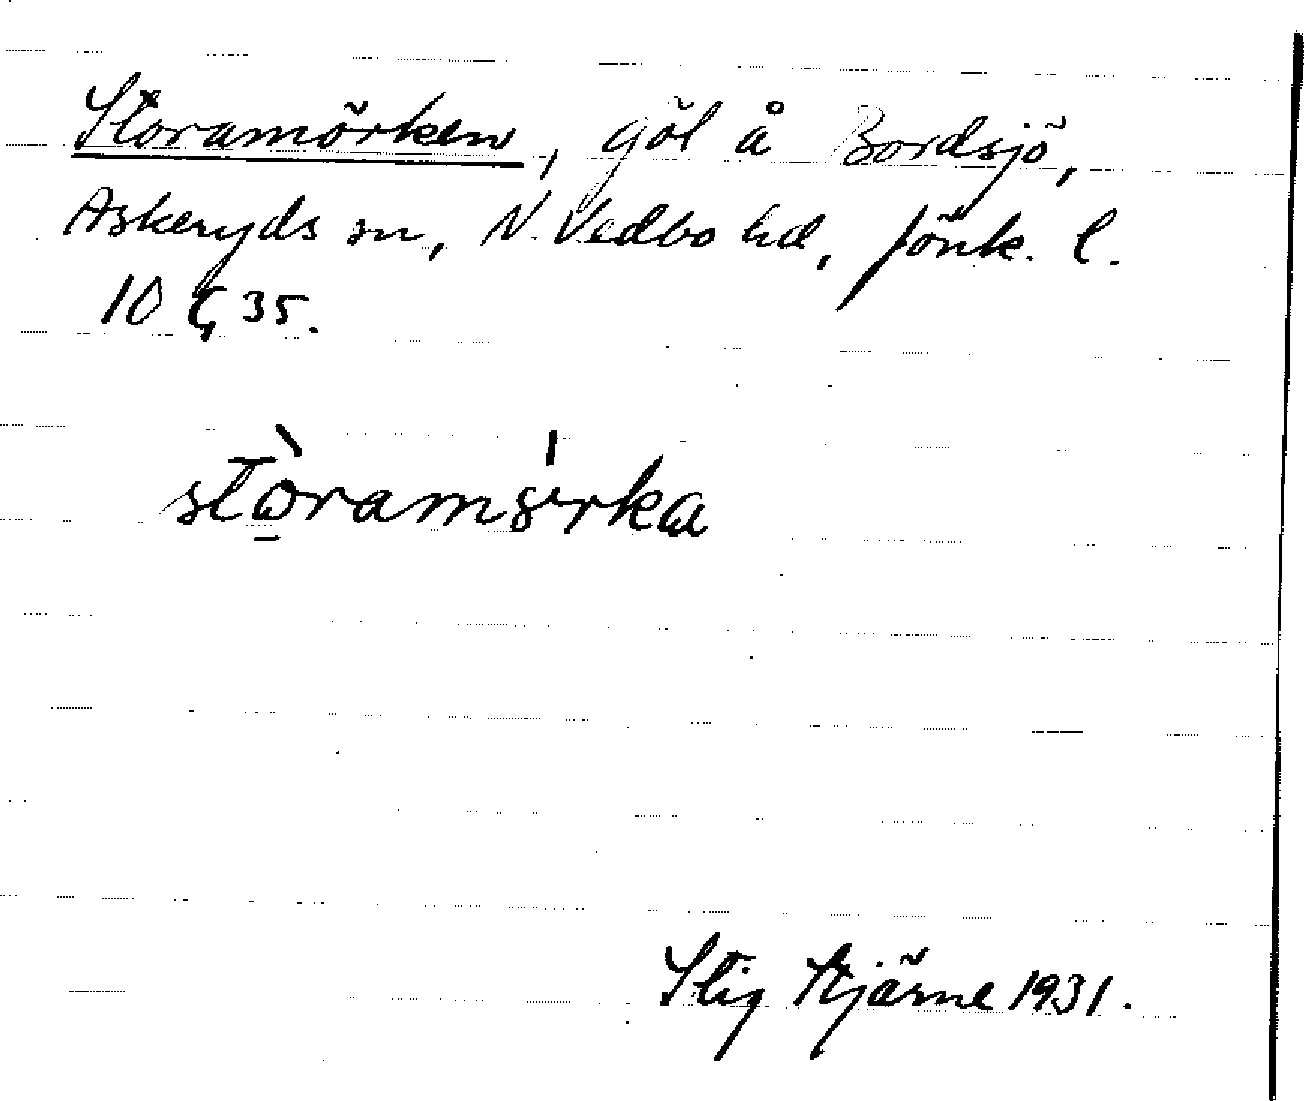 Storamörken, göl å Bordsjö,
Askeryds sn, N. Vedbo hd, Jönk. l.
10 G 35.
stòramörka
Stig Stjärne 1931.